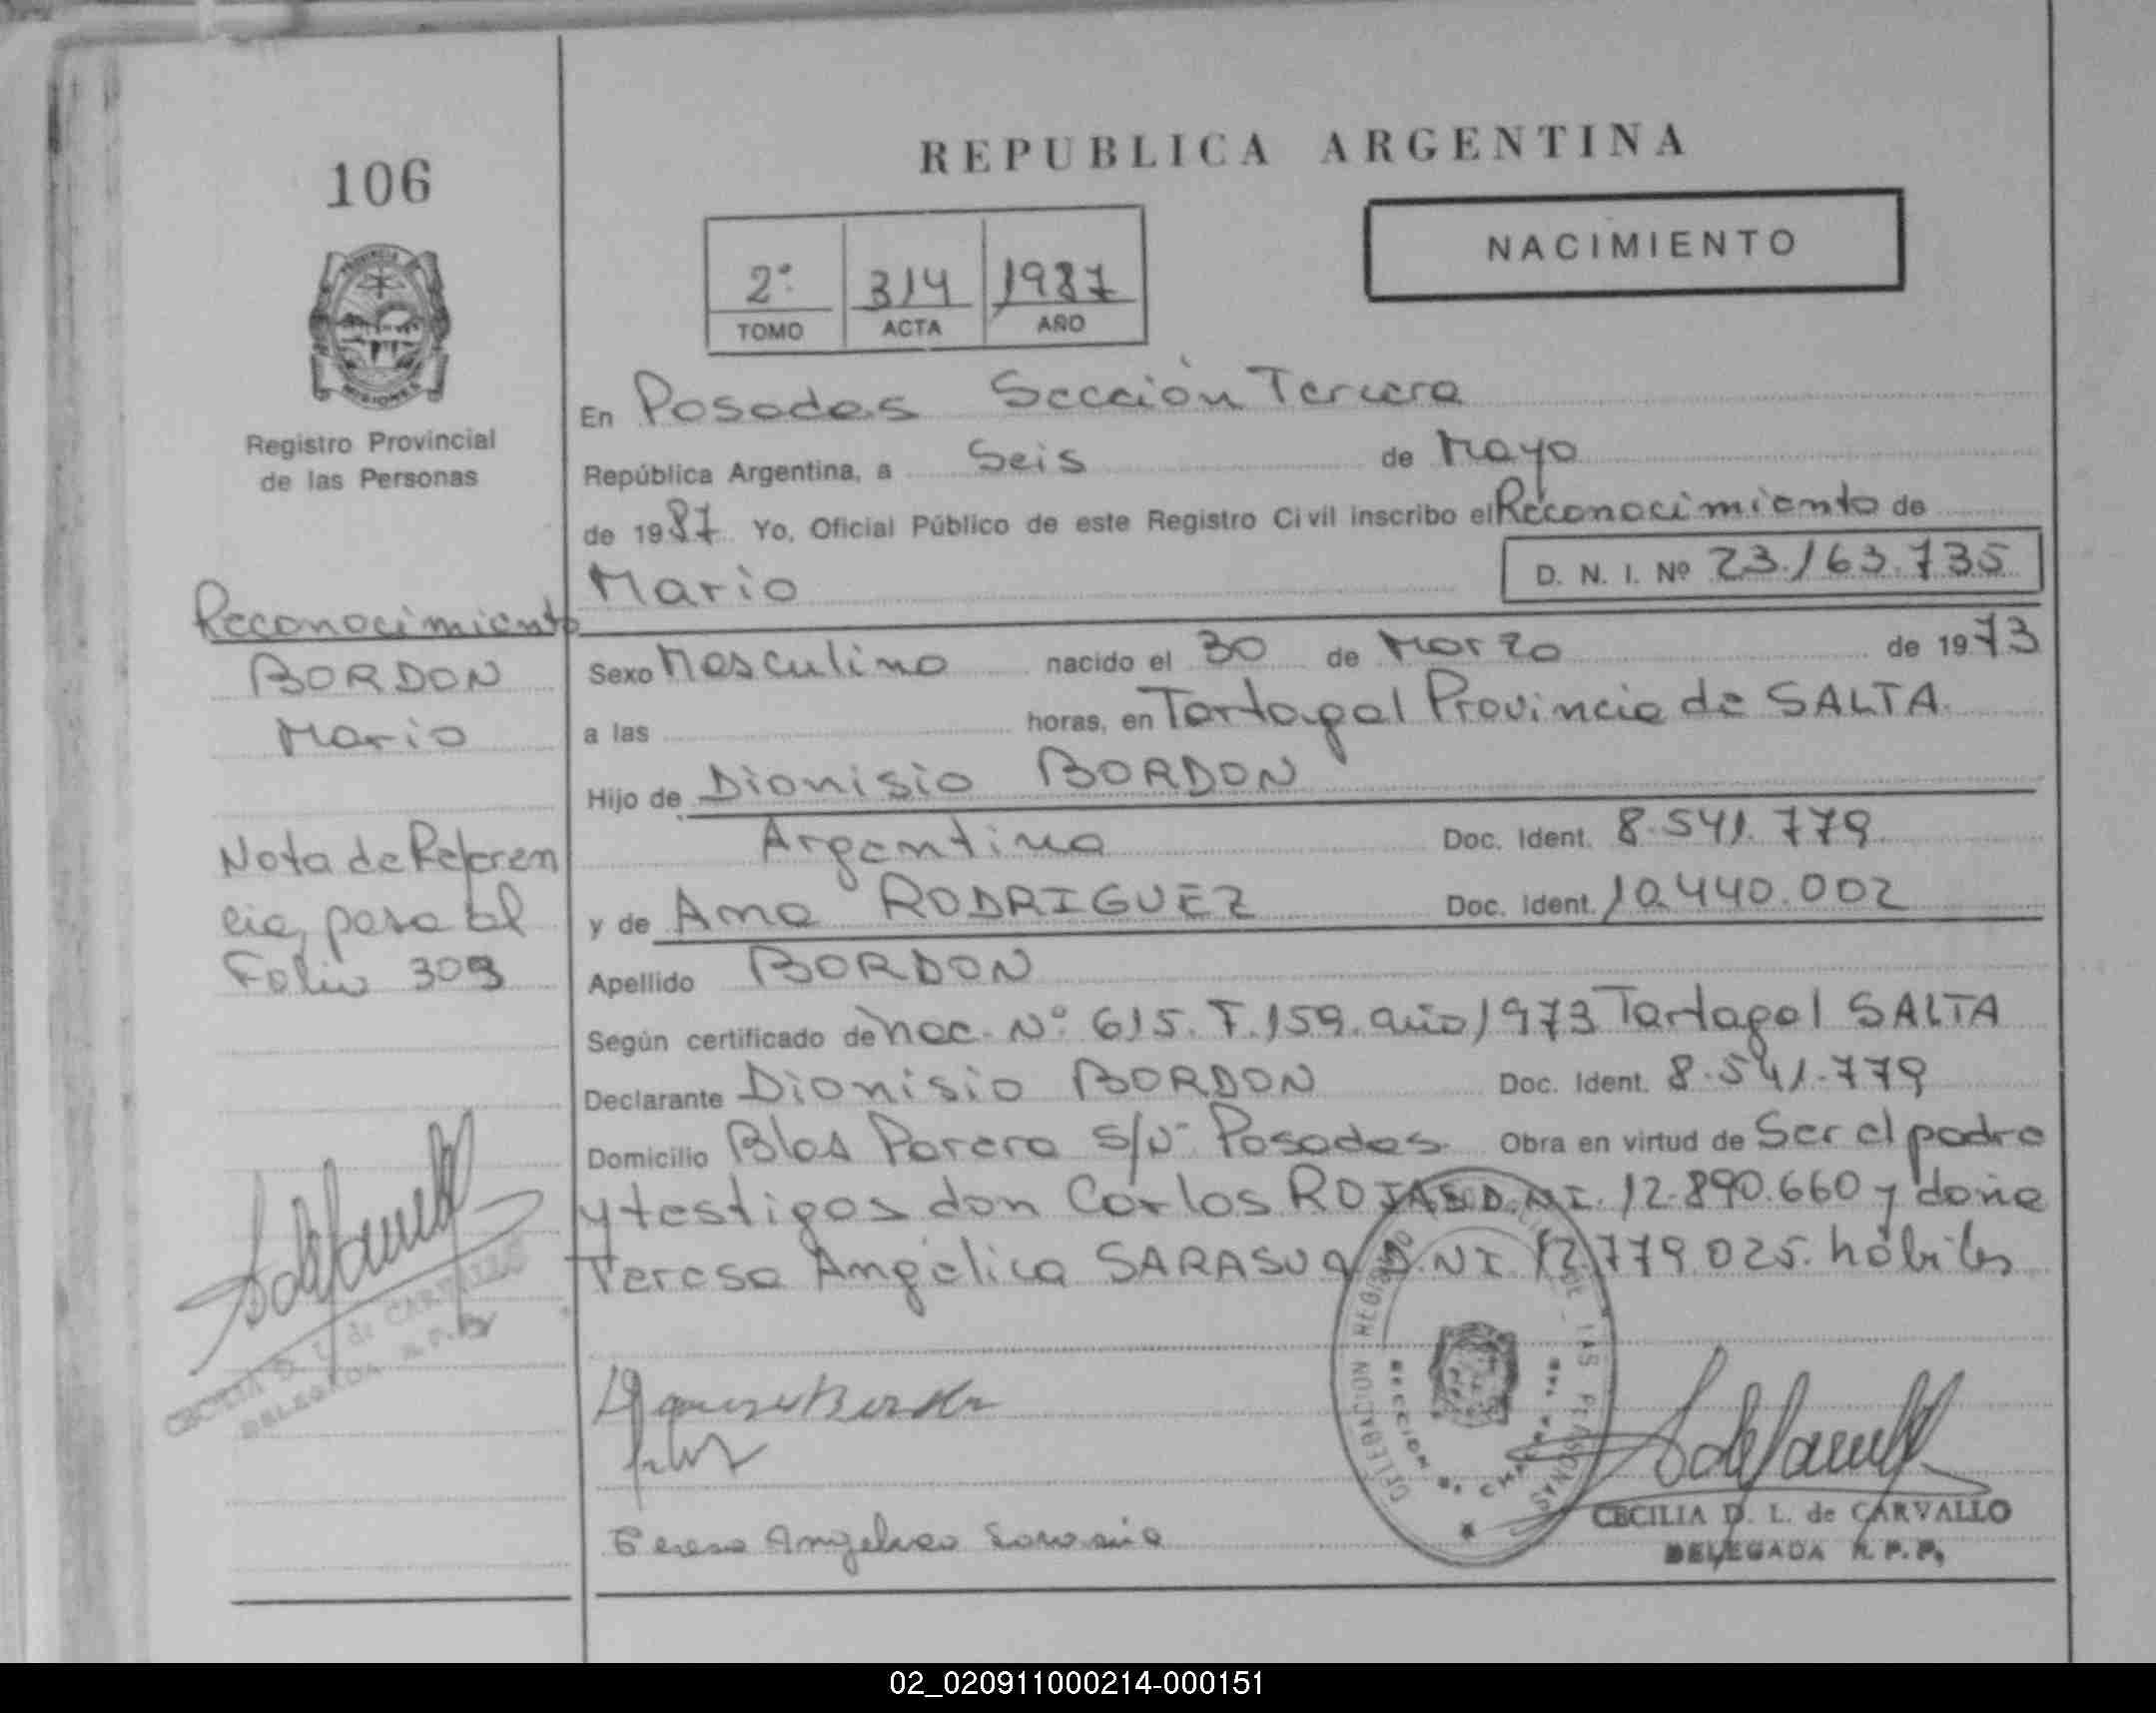 106
Registro Provincial
de las Personas
Reconocimiento
BORDON
Mario
Nota de Referen
cia, pasa al
Folio 309
CECILIA D. L. de CARVALLO
DELEGADA R. P. P.
REPUBLICA ARGENTINA
NACIMIENTO
2º 314 1987
TOMO ACTA AÑO
En Posadas Sección Tercera
República Argentina, a Seis de Mayo
de 1987 Yo, Oficial Público de este Registro Civil inscribo el Reconocimiento de
Mario D. N. I. Nº 23.163.735
Sexo Masculino nacido el 30 de Marzo de 1973
a las horas, en Tartagal Provincia de SALTA
Hijo de Dionisio BORDON
Argentina Doc. Ident. 8.541.779
y de Ana RODRIGUEZ Doc. Ident. 10.440.002
Apellido BORDON
Según certificado de nac. Nº 615. T. 159. año 1973 Tartagal SALTA
Declarante Dionisio BORDON Doc. Ident. 8.541.779
Domicilio Blas Parera s/nº Posadas Obra en virtud de Ser el padre
y testigos don Carlos ROJAS D.N.I. 12.890.660 y doña
Teresa Angélica SARASUA D.N.I 12.779.025. hábiles
Teresa Angelica Sarasúa
CECILIA D. L. de CARVALLO
DELEGADA R. P. P.
02_020911000214-000151